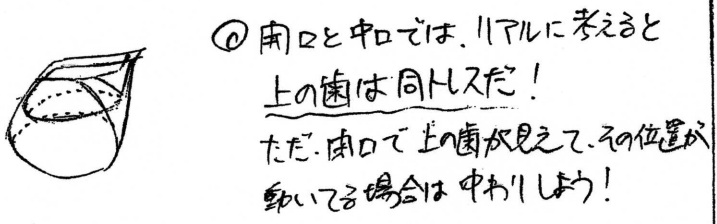 ◎開口と中口では、リアルに考えると
上の歯は同トレスだ！
ただ、閉口で上の歯が見えて、その位置が
動いてる場合は中わりしよう！